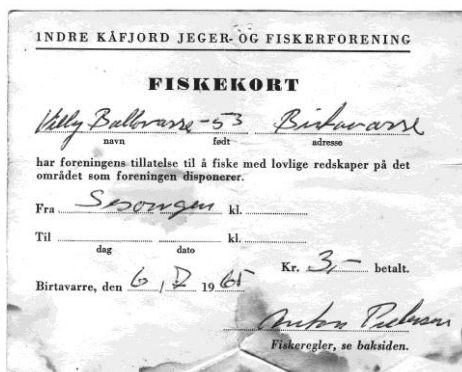 INDRE KÅFJORD JEGER- OG FISKERFORENING
FISKEKORT
Villy Ballovarre -53 Birtavarre
navn født adresse
har foreningens tillatelse til å fiske med lovlige redskaper på det
området som foreningen disponerer.
Fra Sesongen kl.
Til kl.
dag dato
Kr. 3,- betalt.
Birtavarre, den 6 , 7 1965
Anton Pedersen
Fiskeregler, se baksiden.